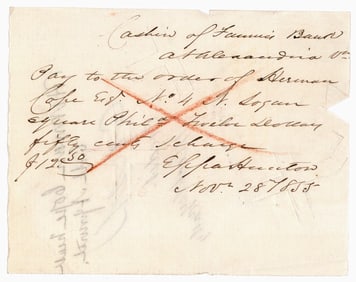 Cashier of Farmers Bank
at Alexandria Va
Pay to the order of Herman
Cope Esq. No 4 N. Logan
Square Phila Twelve Dollars
fifty cents & charge
$12 50 Eppa Hunton
Novr. 28 1855